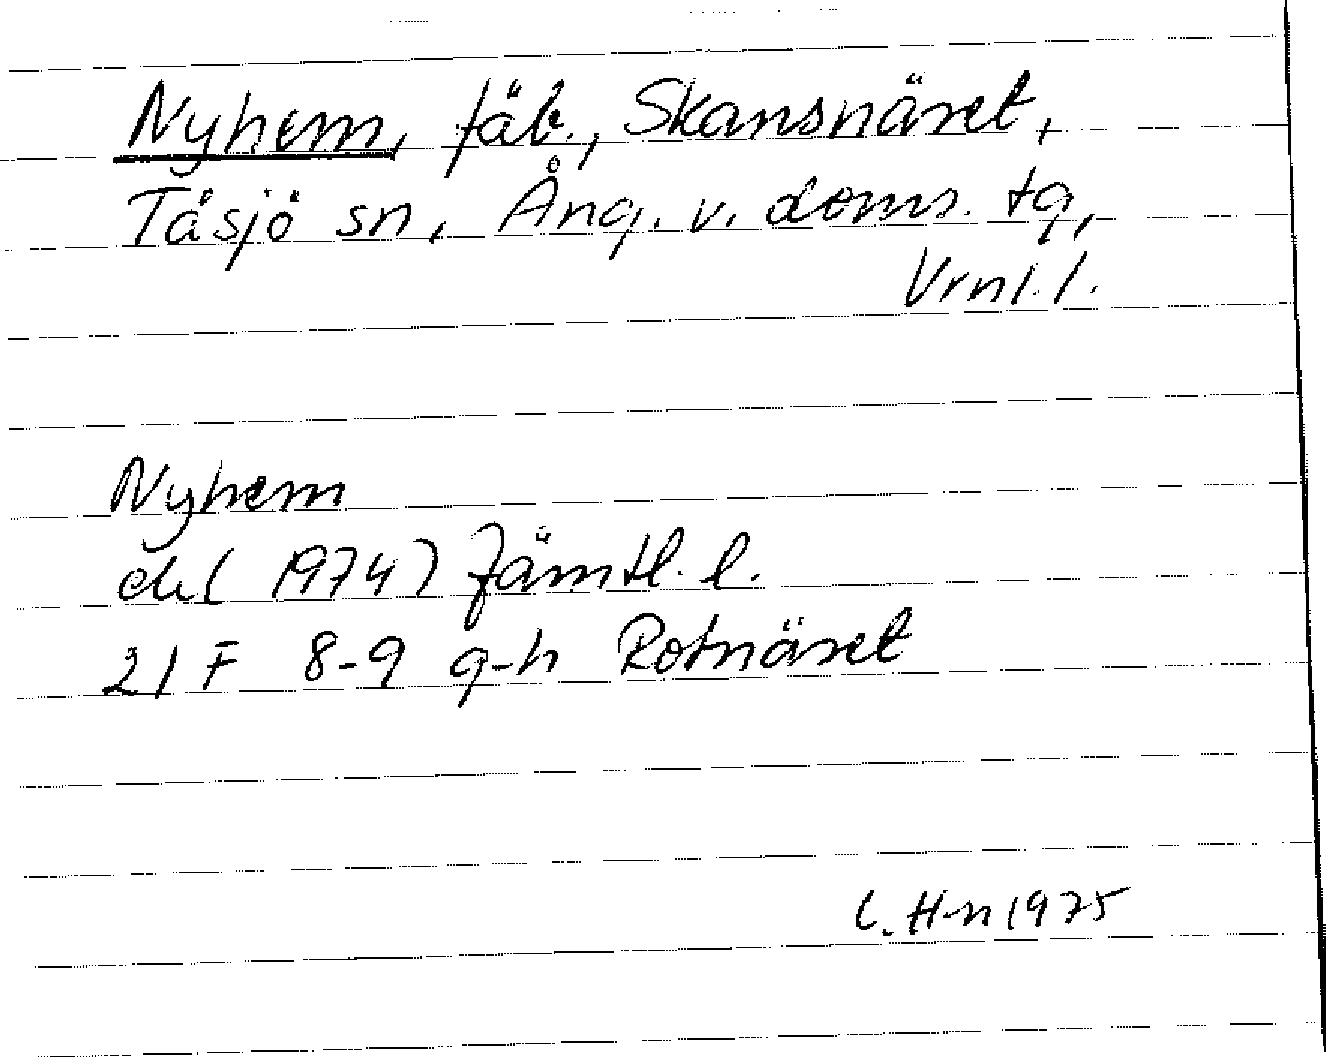 Nyhem, fäb., Skansnäset,
Tåsjö sn, Ång. v. doms. tg,
Vrnl. l.
Nyhem
ek (1974) Jämtl. l.
21 F 8-9 g-h Rotnäset
C. H-n 1975